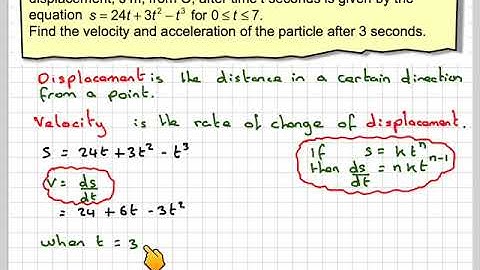 displacement, s m, from O, after time t seconds is given by the
equation s = 24t + 3t² − t³ for 0 ≤ t ≤ 7.
Find the velocity and acceleration of the particle after 3 seconds.
Displacement is the distance in a certain direction
from a point.
Velocity is the rate of change of displacement.
s = 24t + 3t² − t³
v = ds/dt
= 24 + 6t − 3t²
when t = 3
If s = kt^n
then ds/dt = nkt^(n−1)